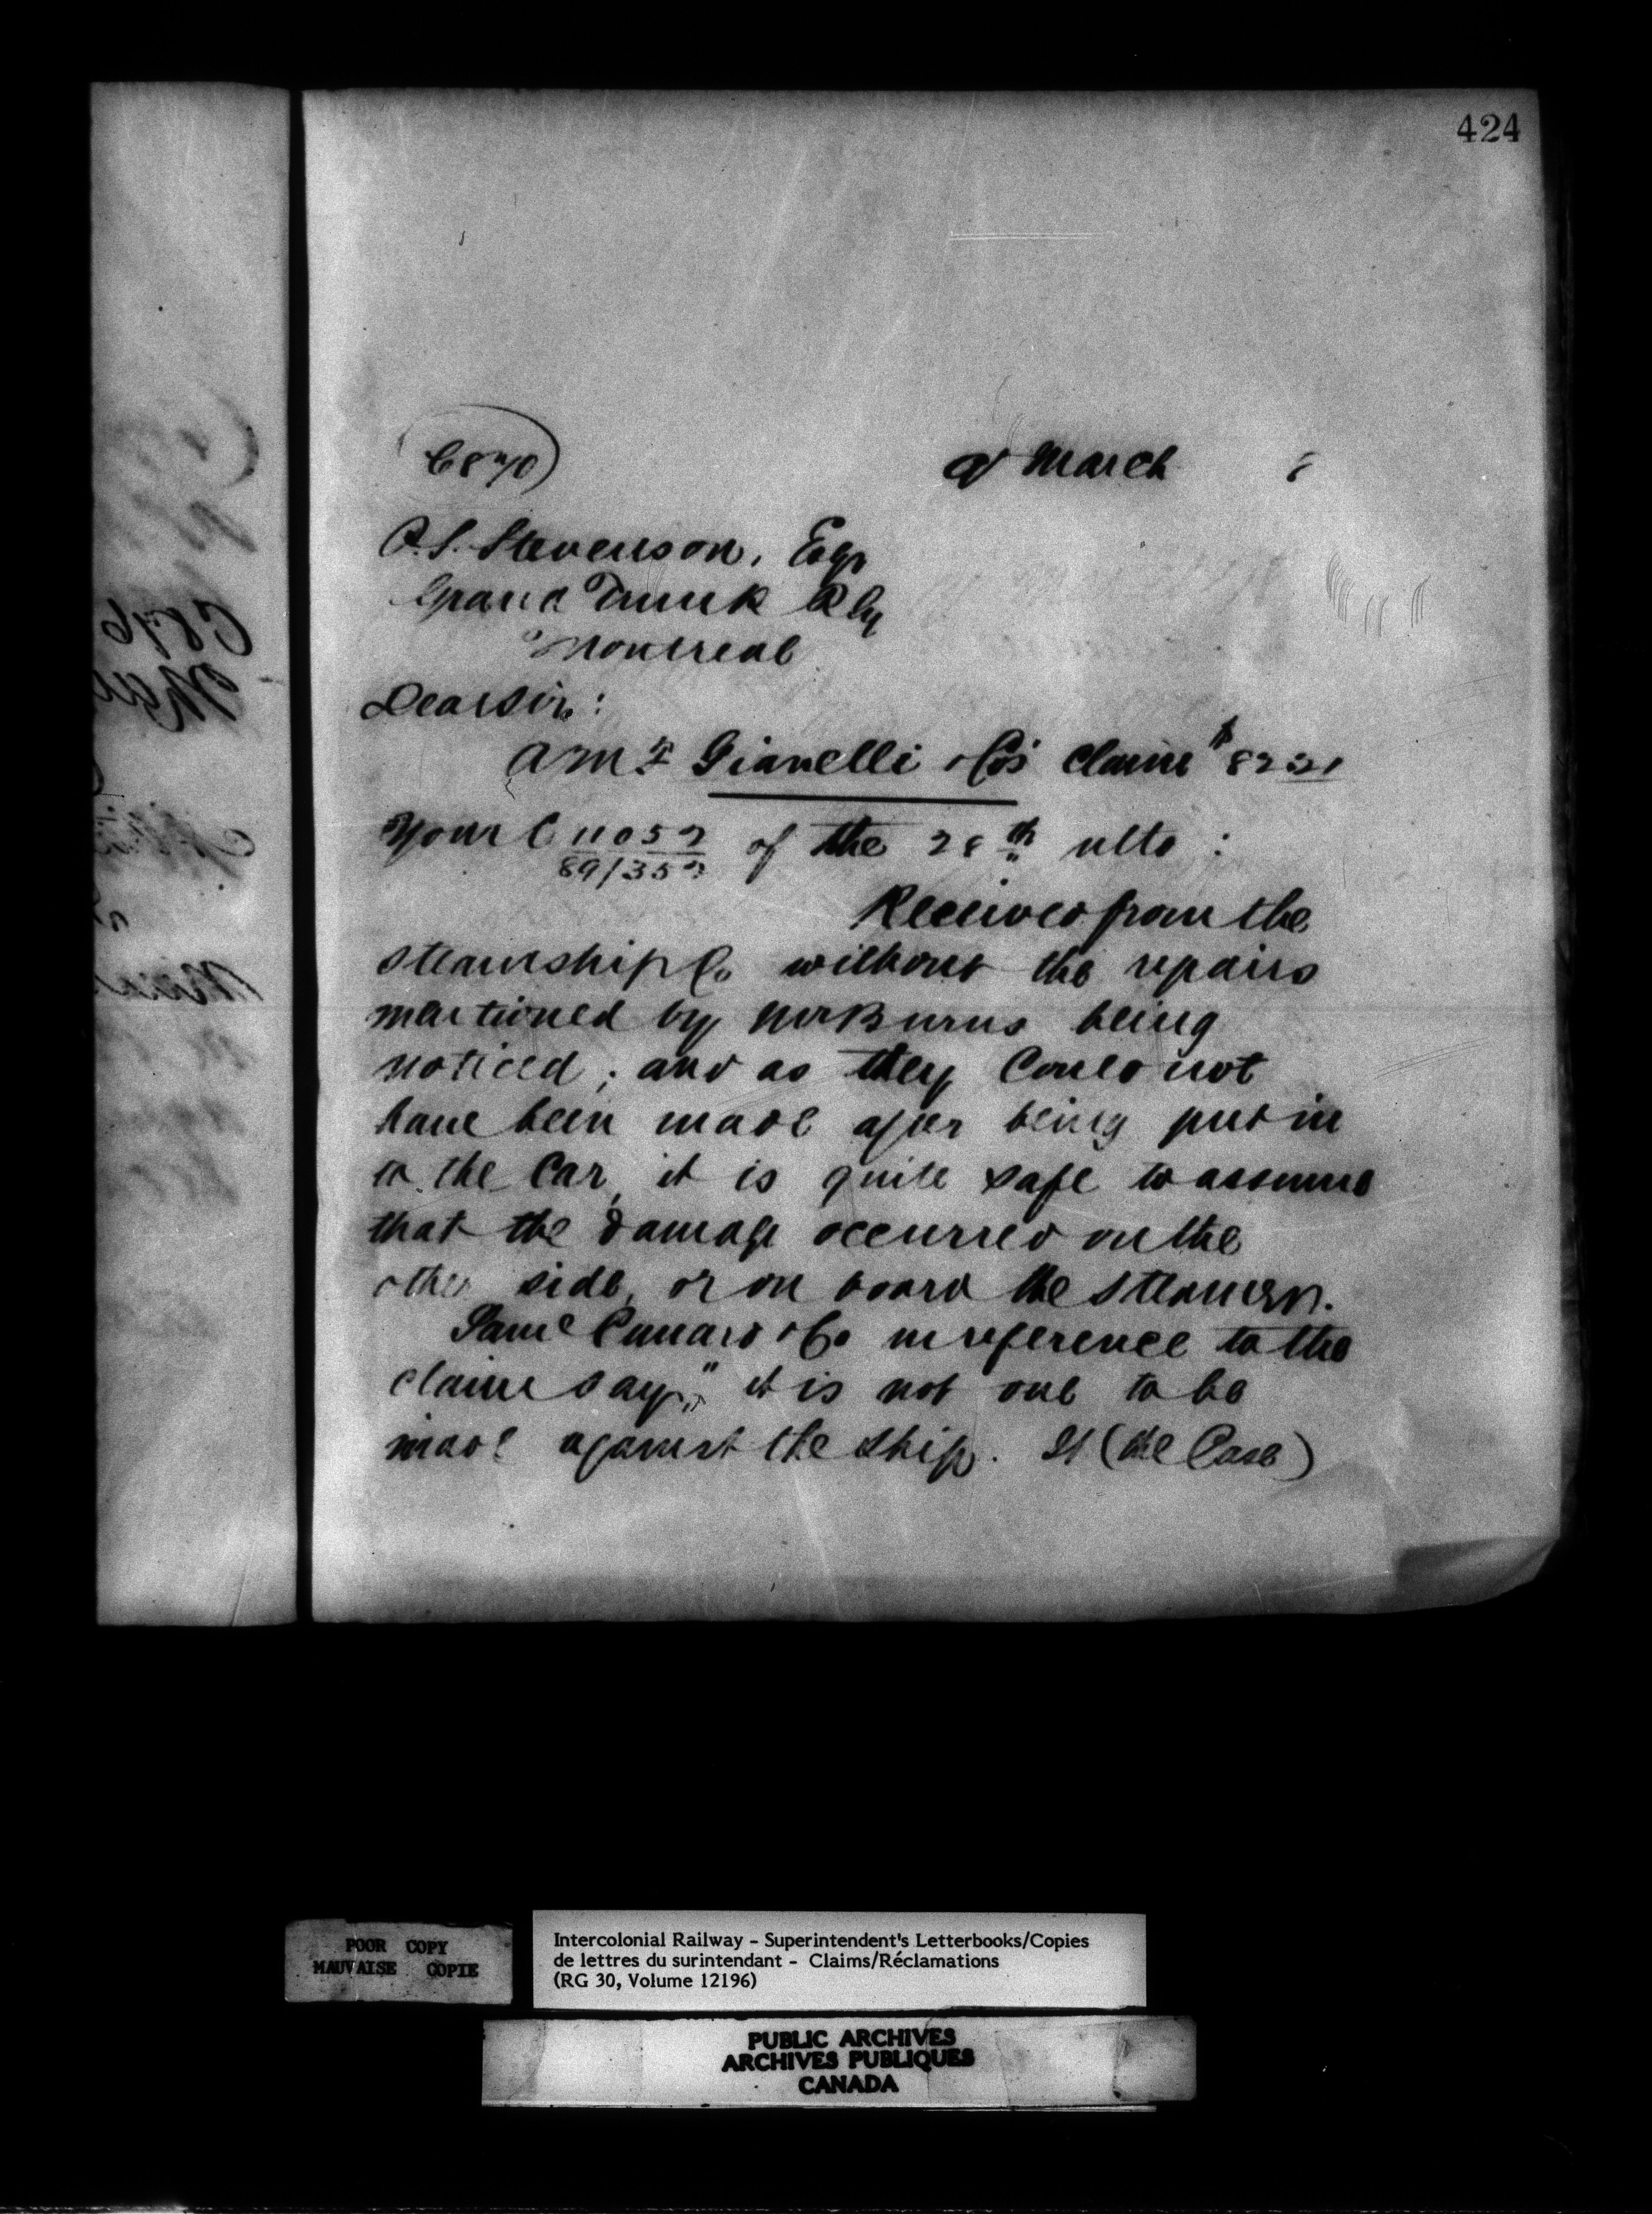 424
C870
9 March
P. S. Stevenson, Esqr
Grand Trunk Rly
Montreal
Dear Sir:
A M F Gianelli & Co's Claim $8221
Your C 11052 of the 28th ulto:
89/352
Received from the
Steamship Co without the repairs
mentioned by Mr Burns being
noticed; and as they Could not
have been made after being put in
to the Car, it is quite safe to assume
that the damage occurred on the
other side, or on board the steamer.
Saml Cunard & Co in reference to the
claim say, "it is not one to be
made against the ship. It (the Case)
C876
POOR COPY
MAUVAISE COPIE
Intercolonial Railway - Superintendent's Letterbooks/Copies
de lettres du surintendant - Claims/Réclamations
(RG 30, Volume 12196)
PUBLIC ARCHIVES
ARCHIVES PUBLIQUES
CANADA